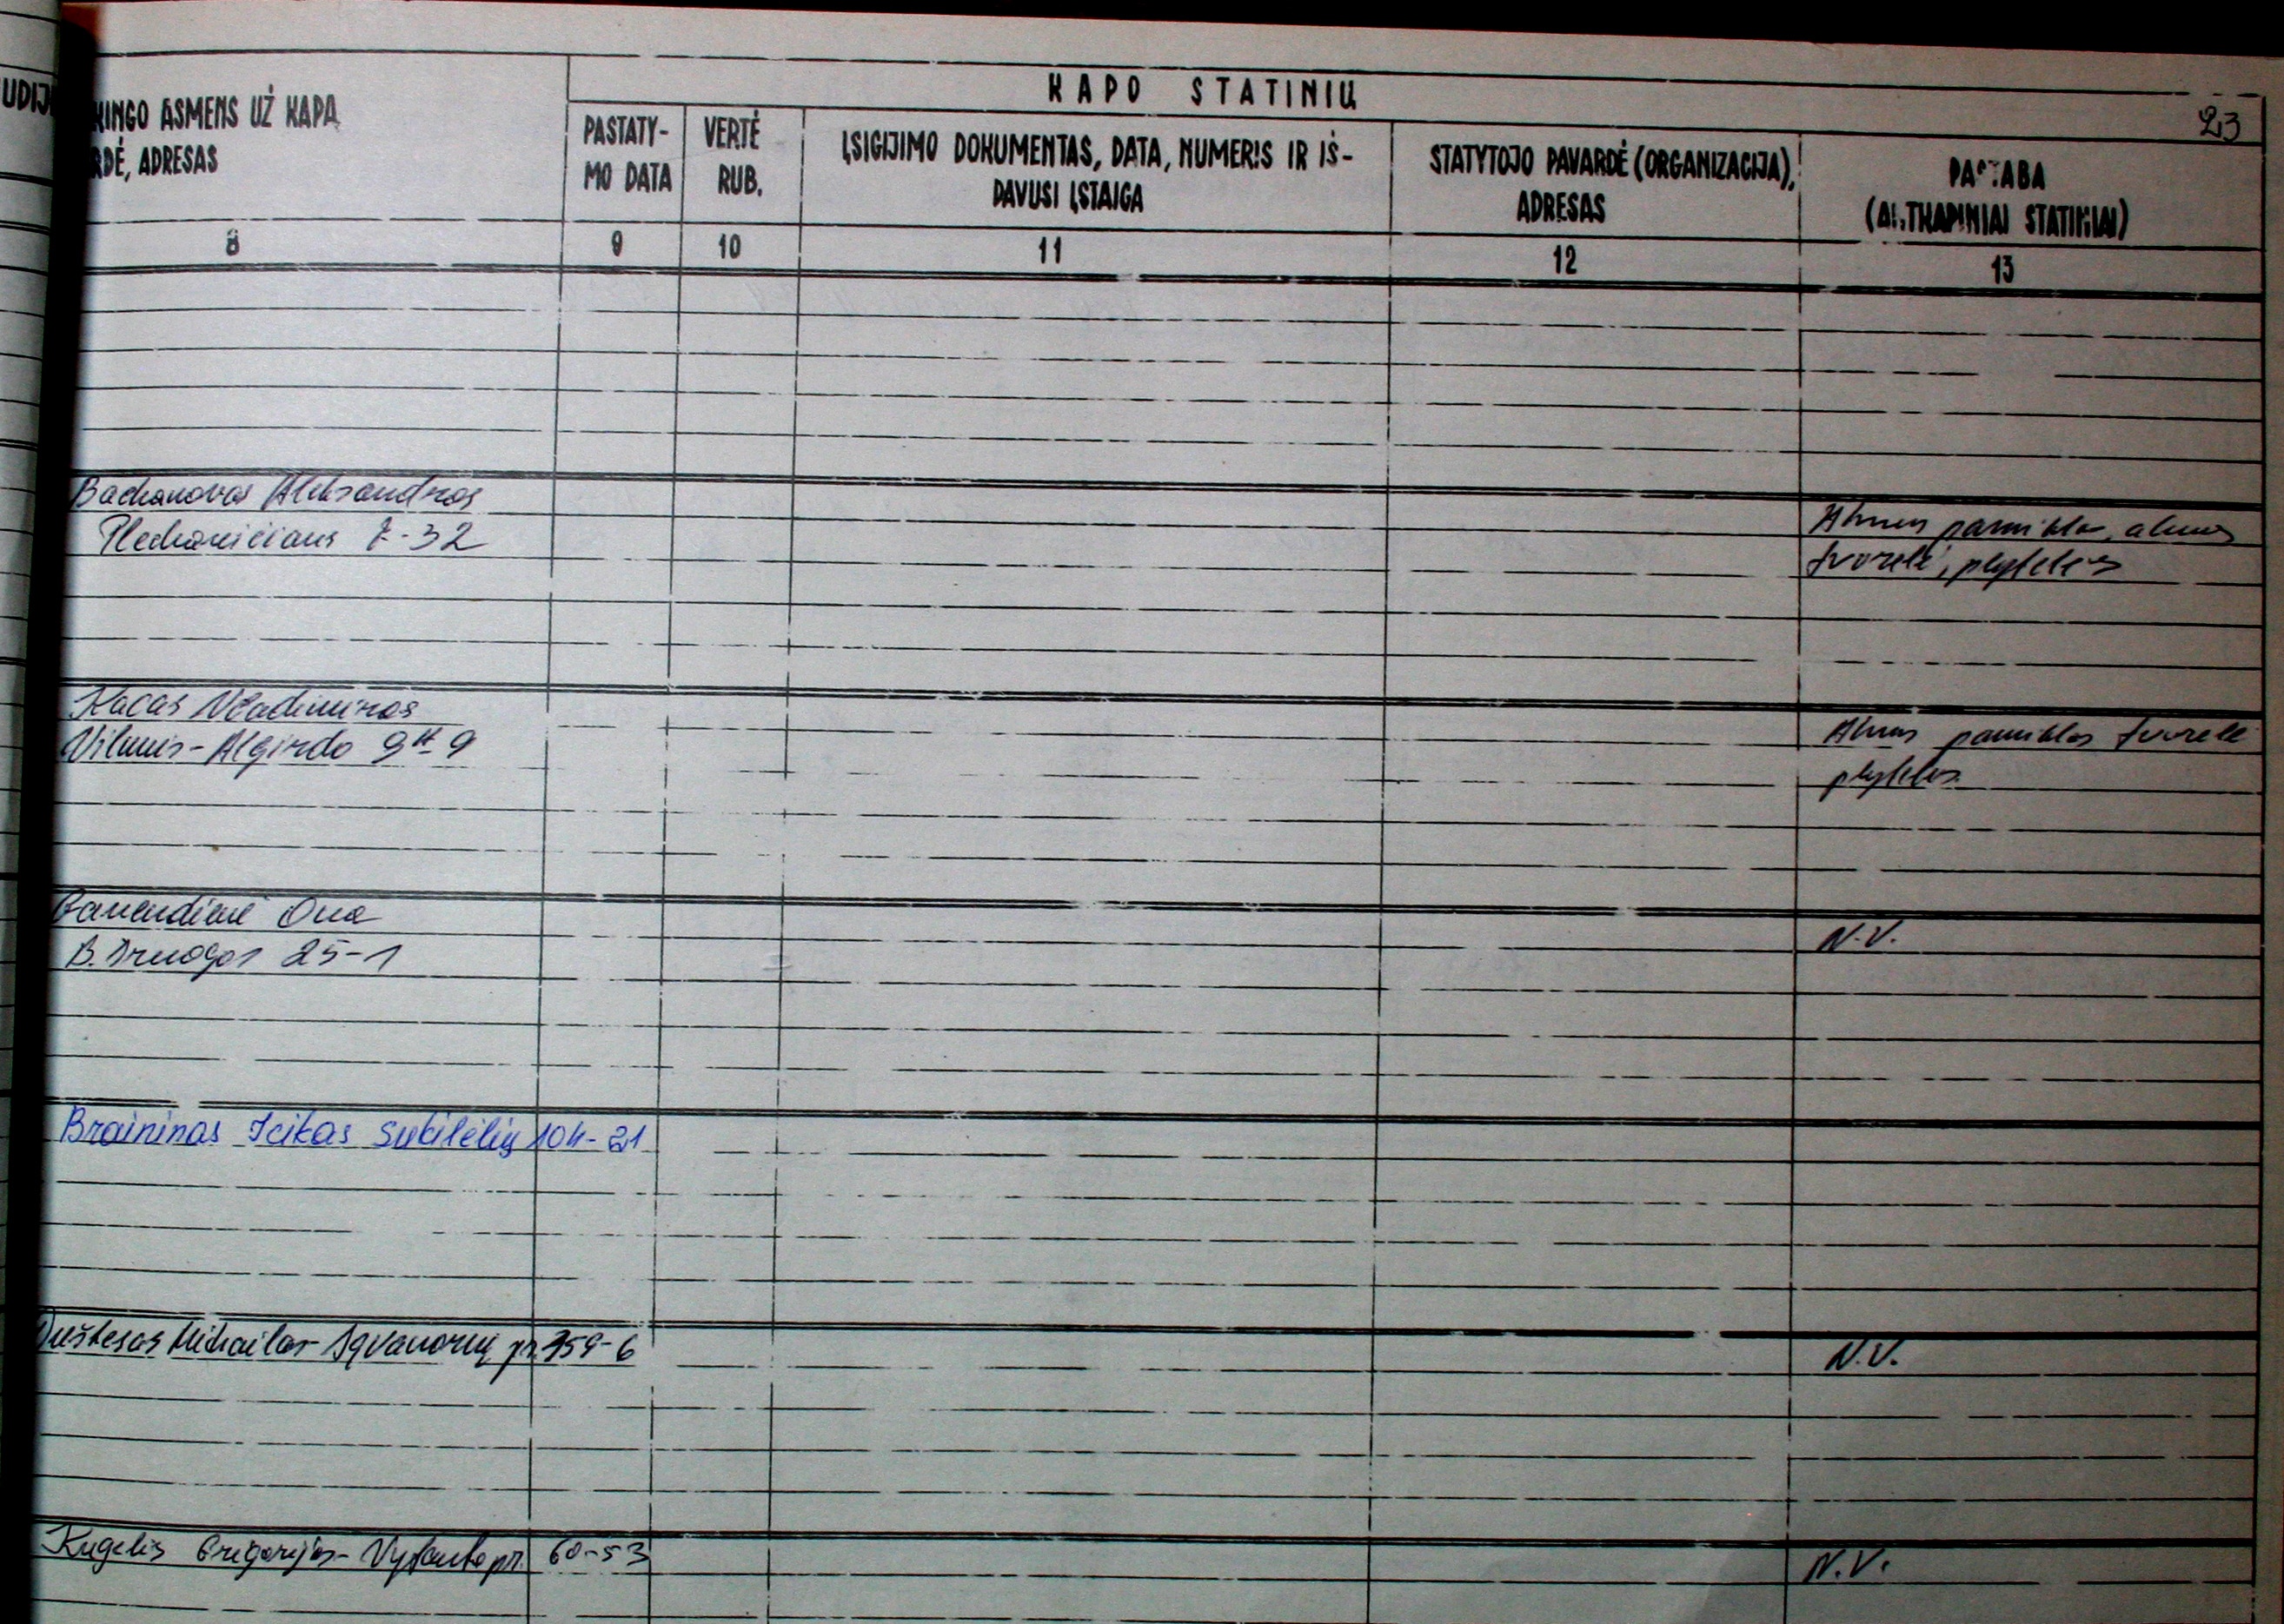 UDIJ
KINGO ASMENS UŽ KAPĄ
RDĖ, ADRESAS
KAPO STATINIŲ
23
PASTATY-
MO DATA
VERTĖ
RUB.
ĮSIGIJIMO DOKUMENTAS, DATA, NUMERIS IR IŠ-
DAVUSI ĮSTAIGA
STATYTOJO PAVARDĖ (ORGANIZACIJA),
ADRESAS
PASTABA
(ANTKAPINIAI STATINIAI)
8 9 10 11 12 13
Bachanovas Aleksandras
Plechavičiaus 7-32
Akmens paminklas, akmens
tvorelė, plytelės
Kacas Vladimiras
Vilnius-Algirdo 9 9
Akmens paminklas tvorelė
plytelės
Ona
B. Sruogos 25-1
N.V.
Braininas Icikas Sukilėlių 104-21
Mihailas Savanorių pr. 359-6
N.V.
Kugelis Grigorijus-Vytauto pr. 60-53
N.V.